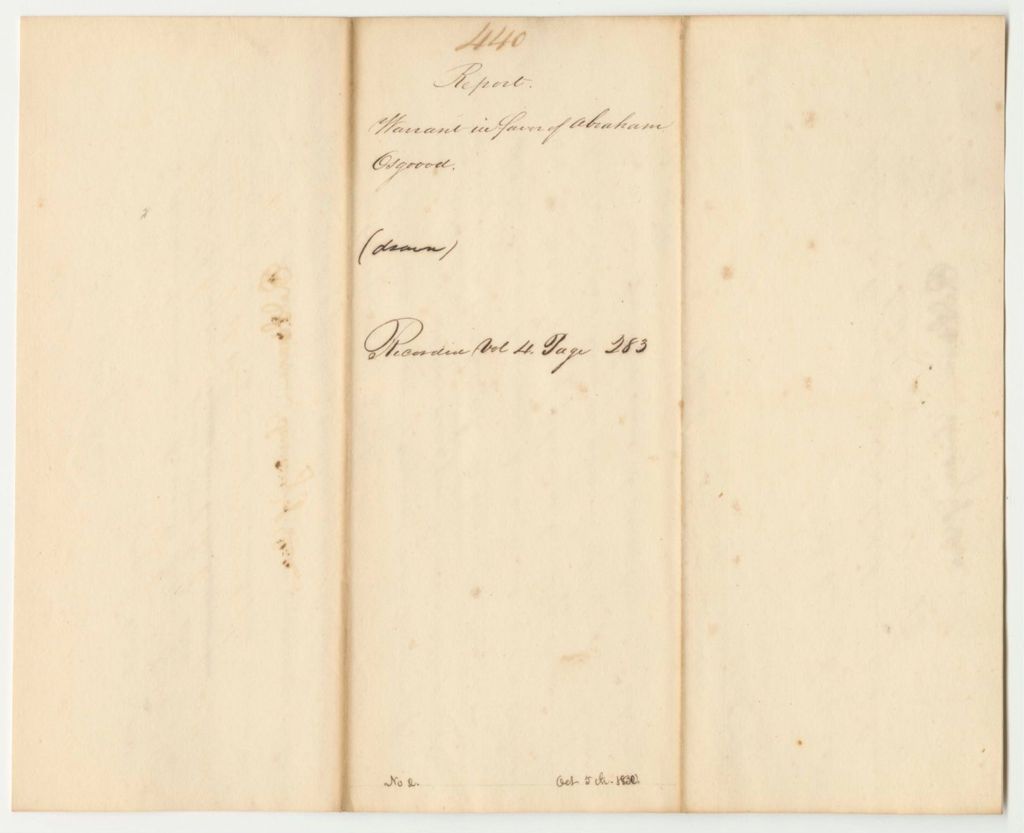 440
Report.
Warrant in favor of Abraham
Osgoood.
(drawn)
Recorded Vol 4. Page 283
No 2. Oct 5th. 1830